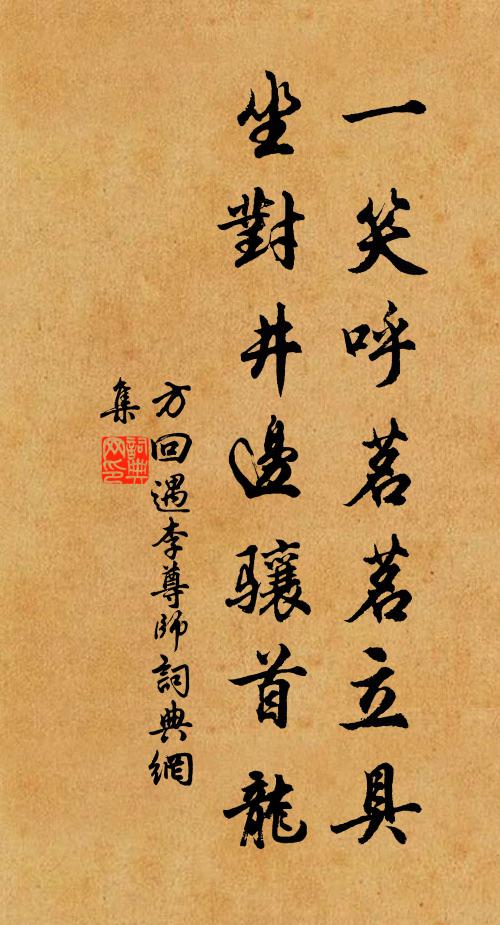 一笑呼茗茗立具
坐對井邊驤首龍
方回遇李尊師詞典網
集
詞典网印